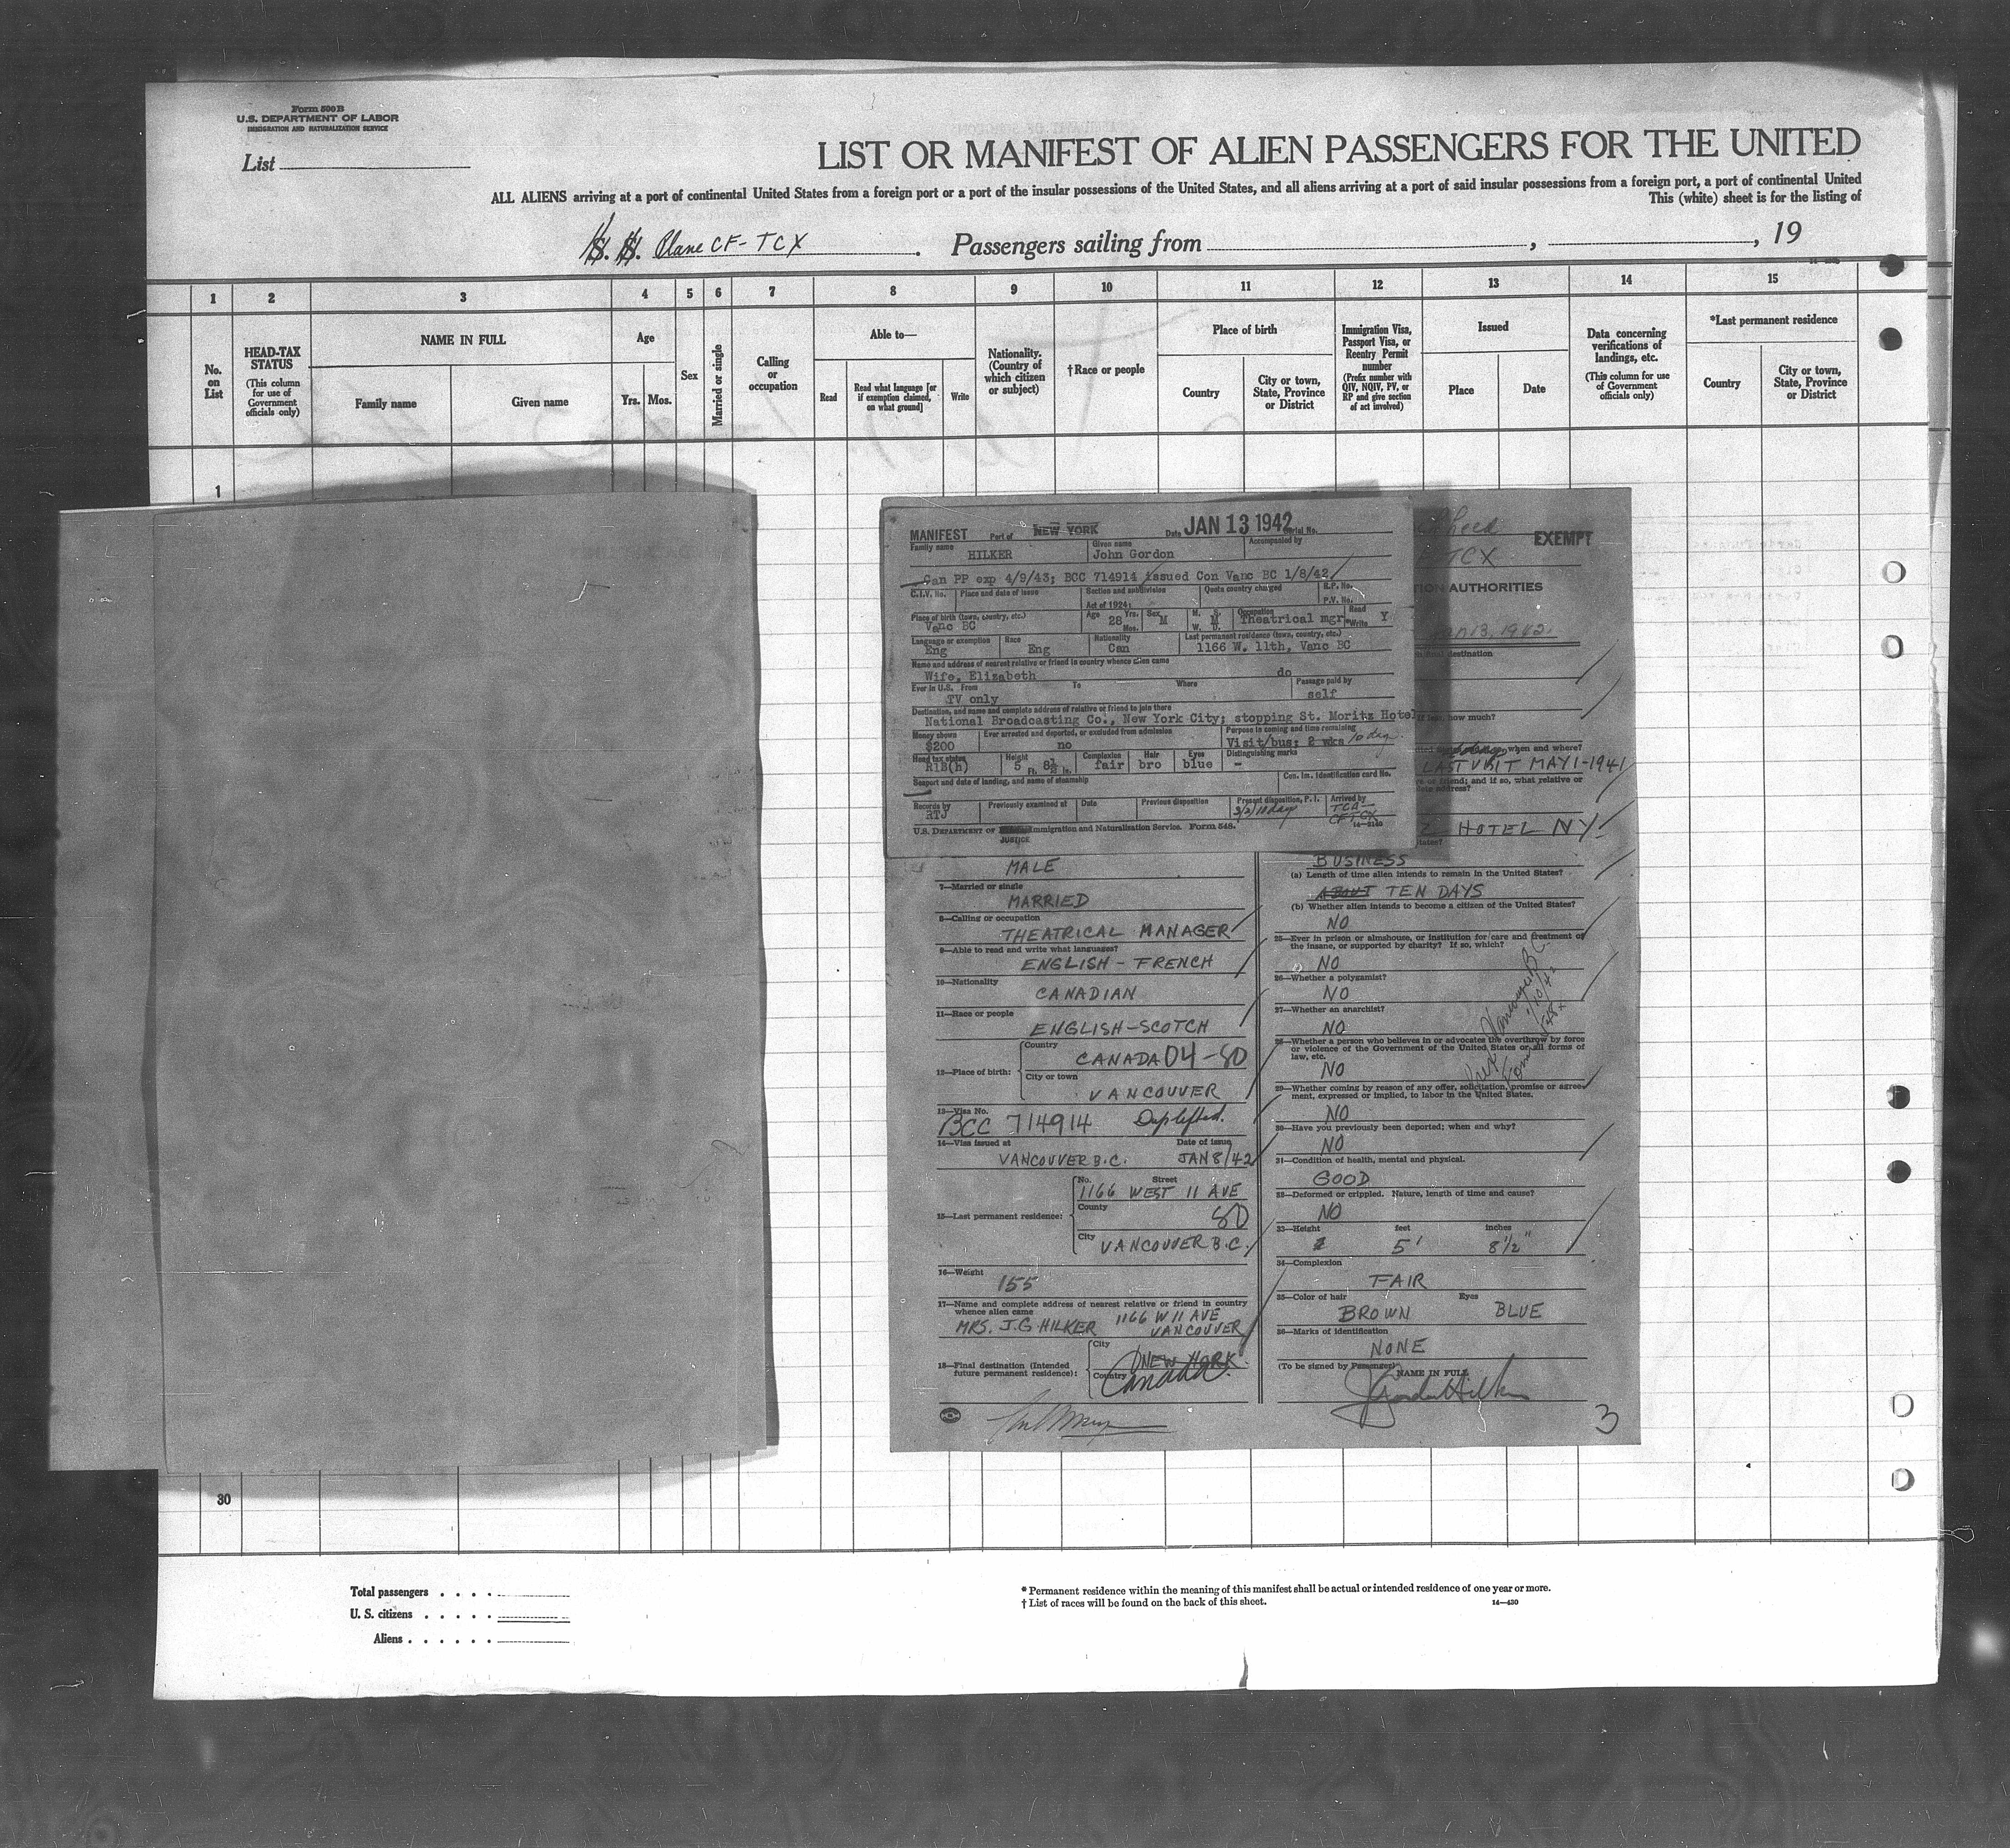 Form 500 B
U.S. DEPARTMENT OF LABOR
IMMIGRATION AND NATURALIZATION SERVICE
List
LIST OR MANIFEST OF ALIEN PASSENGERS FOR THE UNITED
ALL ALIENS arriving at a port of continental United States from a foreign port or a port of the insular possessions of the United States, and all aliens arriving at a port of said insular possessions from a foreign port, a port of continental United
This (white) sheet is for the listing of
S. S. Plane CF-TCX. Passengers sailing from , , 19
1 2 3 4 5 6 7 8 9 10 11 12 13 14 15
No. on List
HEAD-TAX STATUS
(This column for use of Government officials only)
NAME IN FULL
Family name
Given name
Age
Yrs. Mos.
Sex
Married or single
Calling or occupation
Able to—
Read
Read what language [or if exemption claimed, on what ground]
Write
Nationality. (Country of which citizen or subject)
†Race or people
Place of birth
Country
City or town, State, Province or District
Immigration Visa, Passport Visa, or Reentry Permit number
(Prefix number with QIV, NQIV, PV, or RP and give section of act involved)
Issued
Place
Date
Data concerning verifications of landings, etc.
(This column for use of Government officials only)
*Last permanent residence
Country
City or town, State, Province or District
1
MANIFEST Port of NEW YORK Date JAN 13 1942 Serial No.
Family name HILKER Given name John Gordon Accompanied by
Can PP exp 4/9/43; BCC 714914 issued Con Vanc BC 1/8/42
C.I.V. No. Place and date of issue Section and subdivision Act of 1924: Quota country charged R.P. No. P.V. No.
Place of birth (town, country, etc.) Vanc BC Age 28 Yrs. Mos. Sex M M. S. W. D. M Occupation Theatrical mgr Read Write Y
Language or exemption Eng Race Eng Nationality Can Last permanent residence (town, country, etc.) 1166 W. 11th, Vanc BC
Name and address of nearest relative or friend in country whence alien came
Wife, Elizabeth do
Ever in U.S. From TV only To Where Passage paid by self
Destination, and name and complete address of relative or friend to join there
National Broadcasting Co., New York City; stopping St. Moritz Hotel
Money shown $200 Ever arrested and deported, or excluded from admission no Purpose in coming and time remaining Visit/bus: 2 wks 10 days
Head tax status R1B(h) Height 5 Ft. 8½ In. Complexion fair Hair bro Eyes blue Distinguishing marks -
Seaport and date of landing, and name of steamship Can. Im. Identification card No.
Records by RTJ Previously examined at Date Previous disposition Present disposition, P. I. 3/2/10day Arrived by TCA- CFTCX
U.S. DEPARTMENT OF JUSTICE Immigration and Naturalization Service. Form 548.
EXEMPT
TCX
AUTHORITIES
13, 1942.
destination
how much?
when and where?
LAST VISIT MAY 1-1941
friend; and if so, what relative or
address?
HOTEL NY.
MALE
7—Married or single
MARRIED
8—Calling or occupation
THEATRICAL MANAGER
9—Able to read and write what languages?
ENGLISH - FRENCH
10—Nationality
CANADIAN
11—Race or people
ENGLISH-SCOTCH
12—Place of birth:
Country
CANADA 04-80
City or town
VANCOUVER
13—Visa No.
BCC 714914 Dup lifted.
14—Visa issued at Date of issue
VANCOUVER B.C. JAN 8/42
15—Last permanent residence:
No. Street
1166 WEST 11 AVE
County
80
City
VANCOUVER B.C.
16—Weight
155
17—Name and complete address of nearest relative or friend in country whence alien came
MRS. J.G. HILKER 1166 W 11 AVE VANCOUVER
18—Final destination (Intended future permanent residence):
City
NEW YORK
Country
Canada
BUSINESS
(a) Length of time alien intends to remain in the United States?
ABOUT TEN DAYS
(b) Whether alien intends to become a citizen of the United States?
NO
25—Ever in prison or almshouse, or institution for care and treatment of the insane, or supported by charity? If so, which?
NO
26—Whether a polygamist?
NO
27—Whether an anarchist?
NO
28—Whether a person who believes in or advocates the overthrow by force or violence of the Government of the United States or all forms of law, etc.
NO
29—Whether coming by reason of any offer, solicitation, promise or agreement, expressed or implied, to labor in the United States.
NO
30—Have you previously been deported; when and why?
NO
31—Condition of health, mental and physical.
GOOD
32—Deformed or crippled. Nature, length of time and cause?
NO
33—Height feet inches
5' 8½"
34—Complexion
FAIR
35—Color of hair Eyes
BROWN BLUE
36—Marks of identification
NONE
(To be signed by Passenger) NAME IN FULL
J Gordon Hilker
3
Vancouver BC
1/10/42
30
Total passengers
U. S. citizens
Aliens
* Permanent residence within the meaning of this manifest shall be actual or intended residence of one year or more.
† List of races will be found on the back of this sheet.
14—430